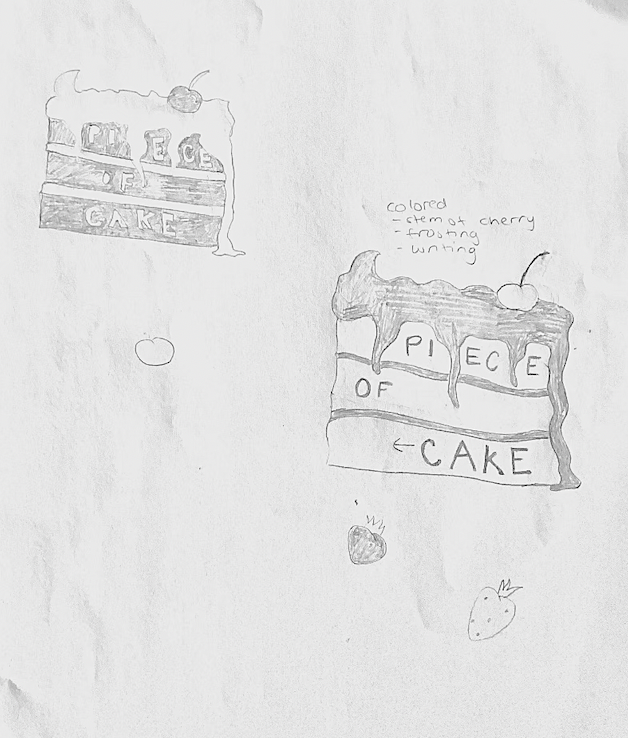 PIECE
OF
CAKE
colored
- stem of cherry
- frosting
- writing
PIECE
OF
←CAKE